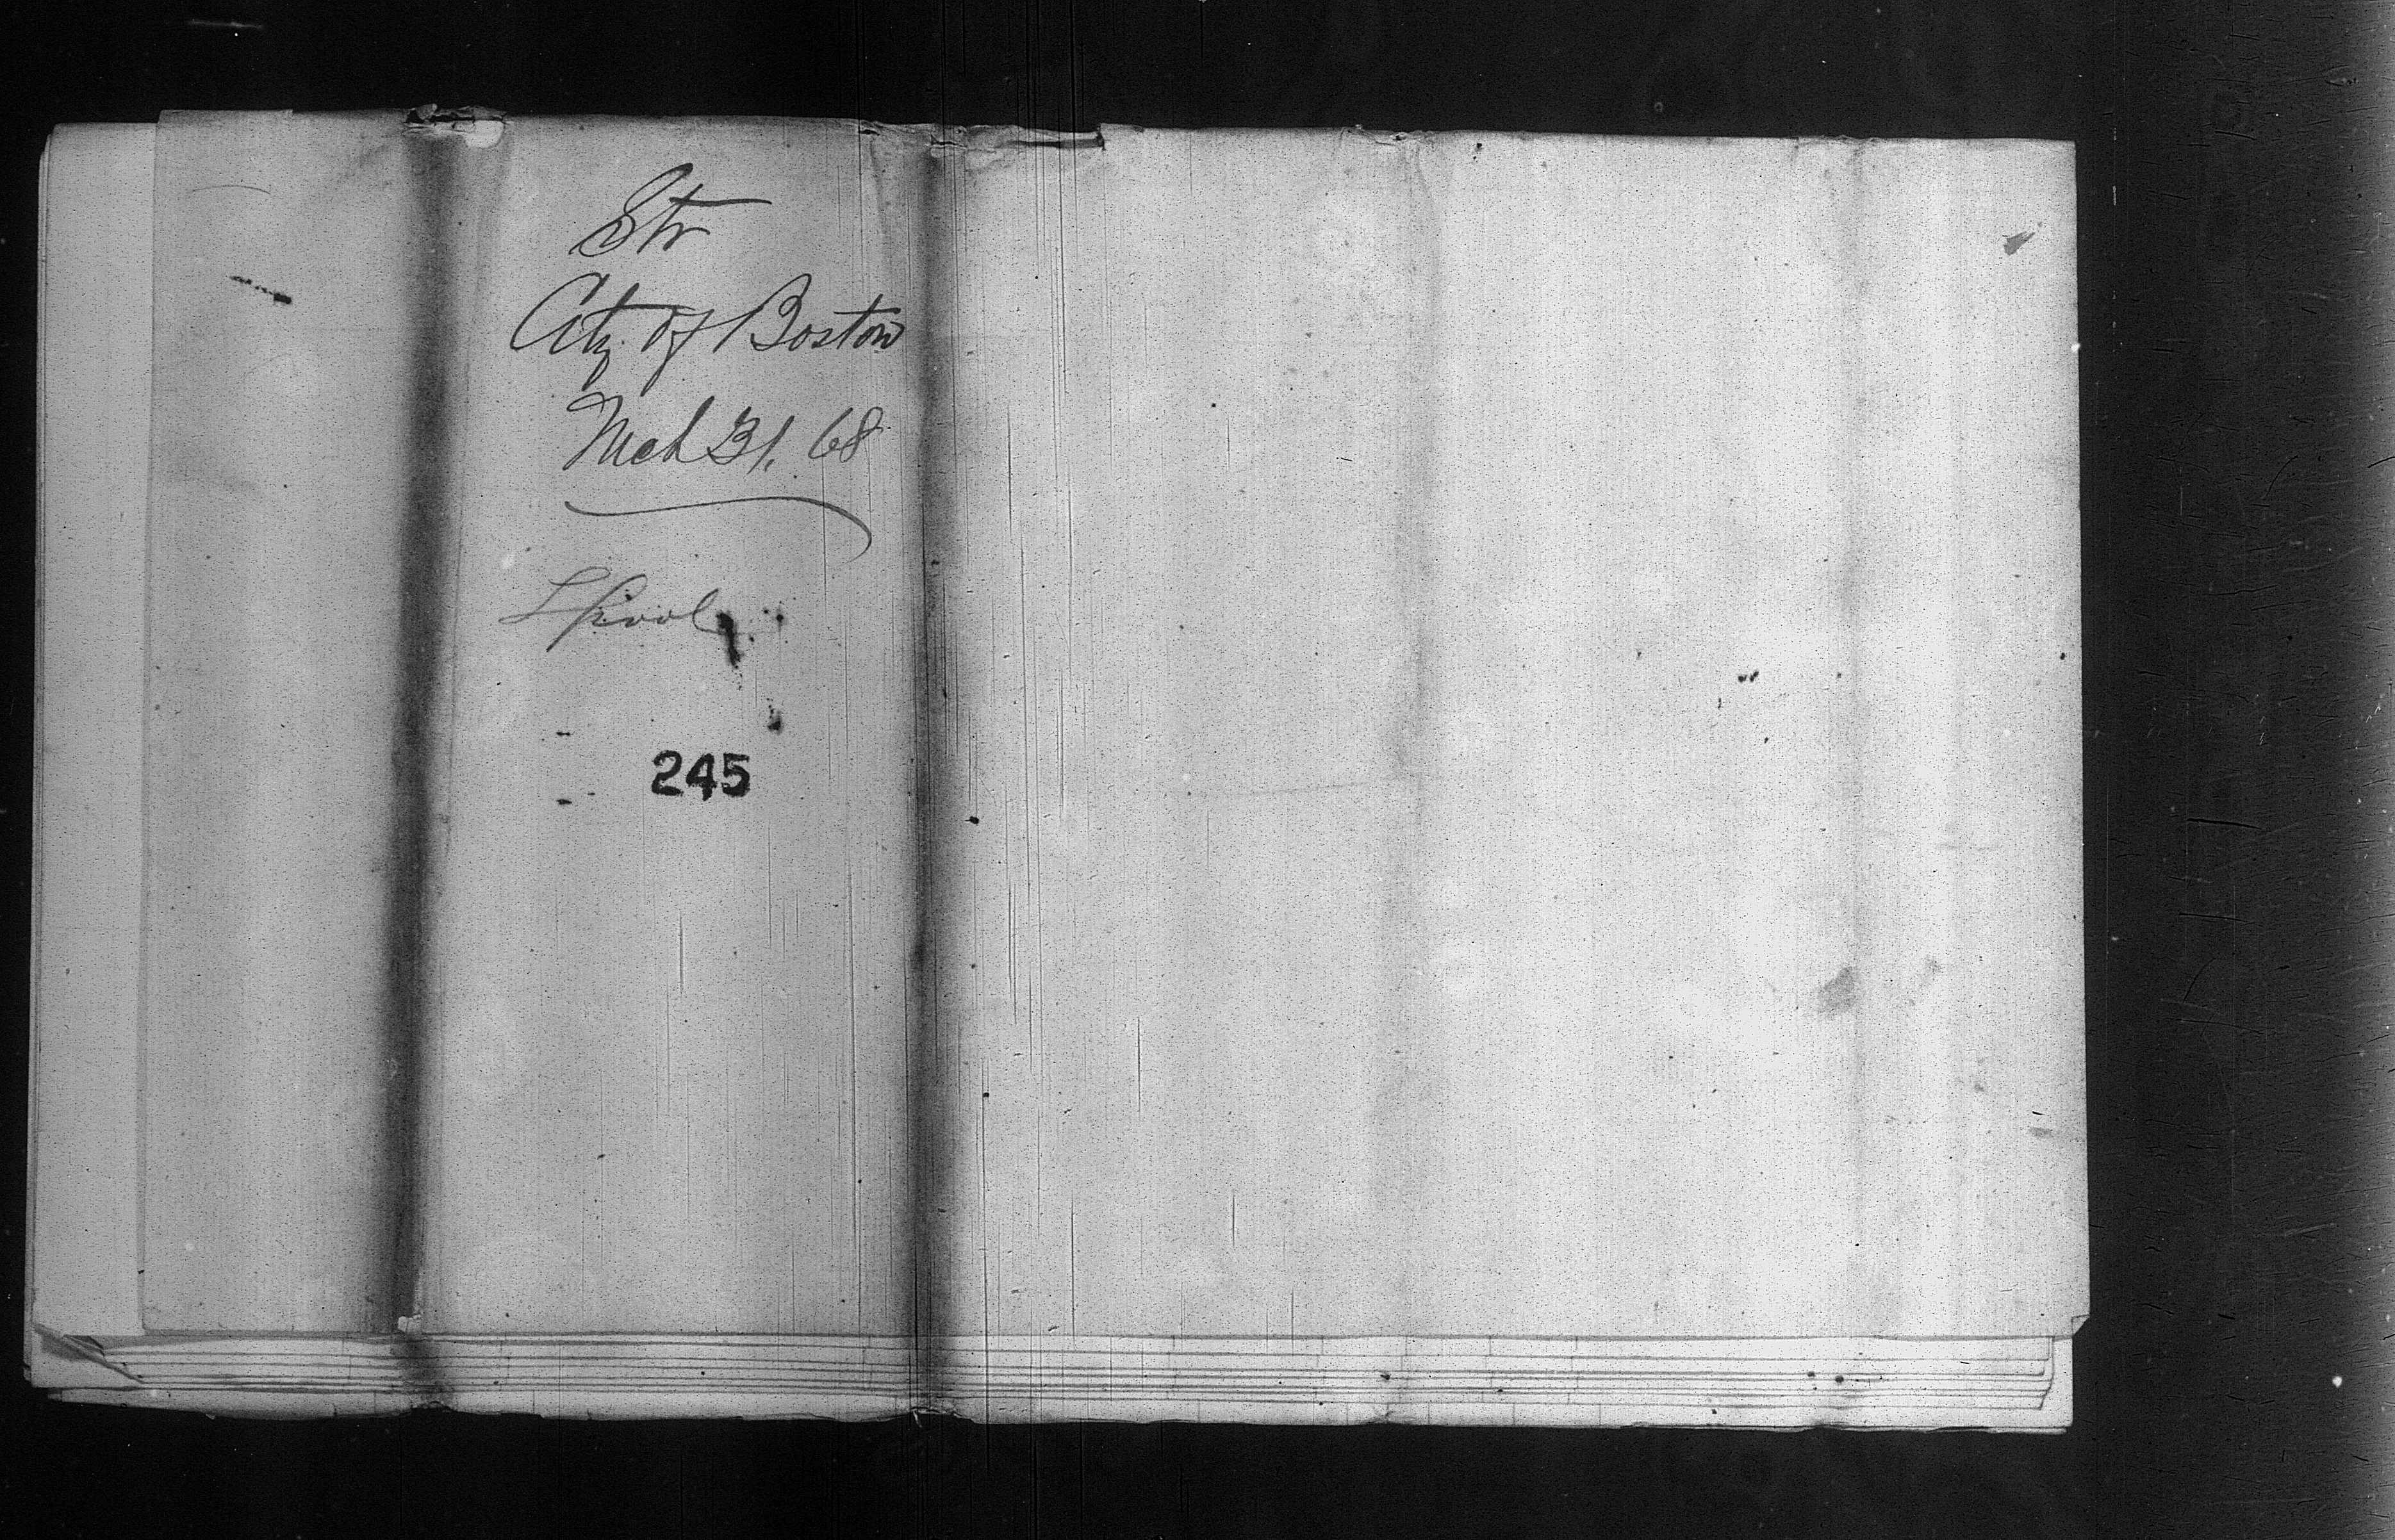 Str
City of Boston
Mch 31. 68
Lpool
245